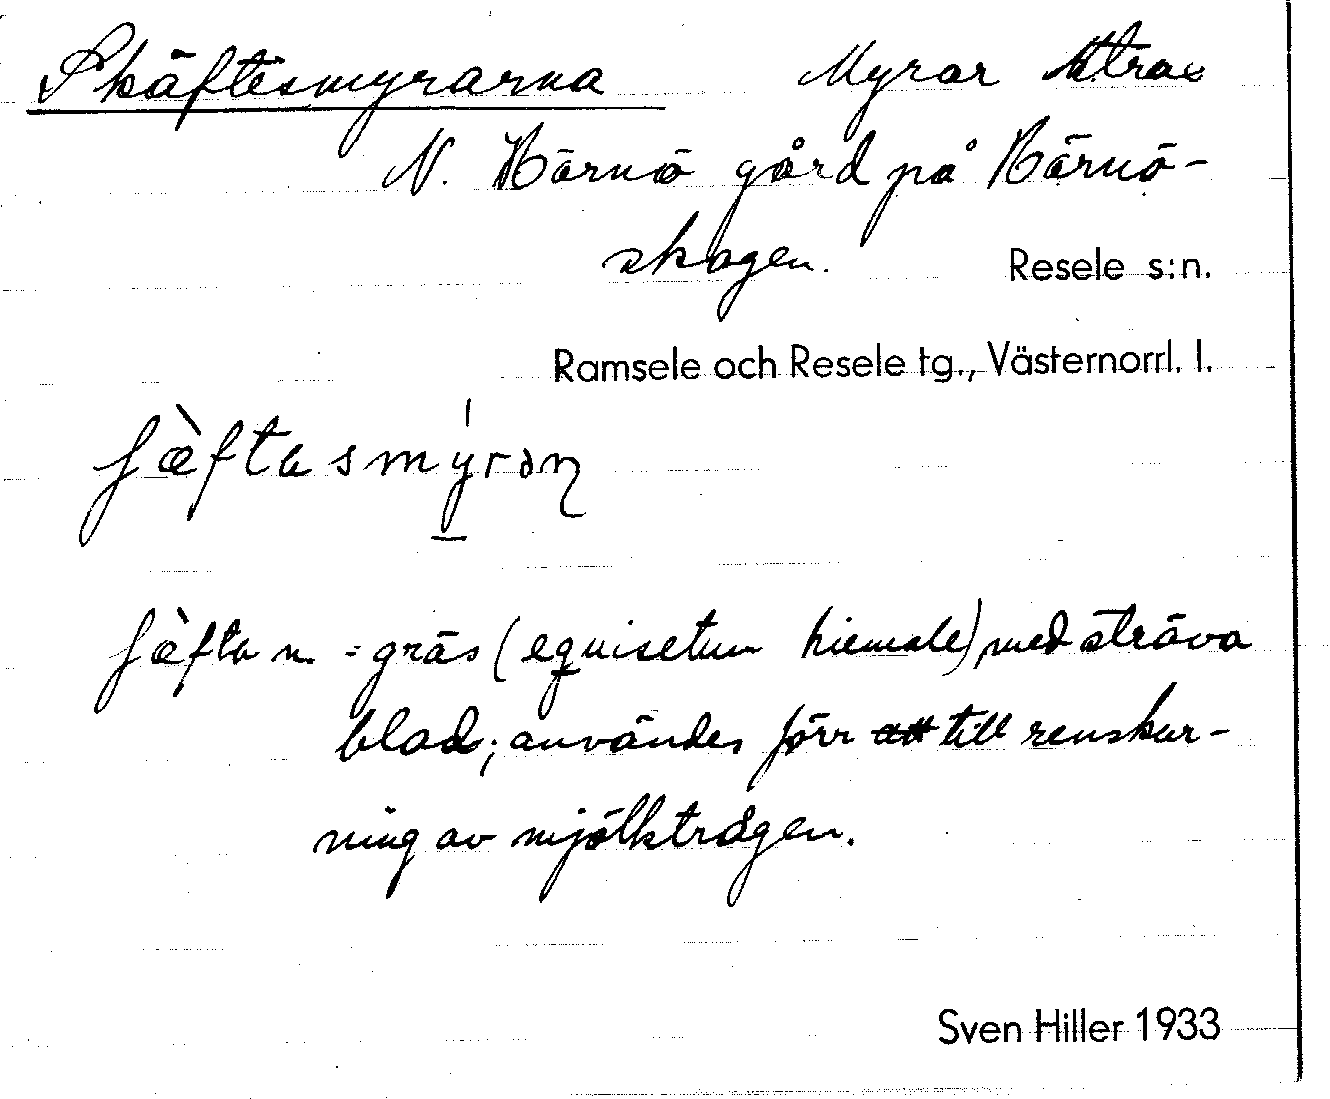 Skäftesmyrarna Myrar strax
N. Hörnö gård på Hörnö-
skogen. Resele s:n.
Ramsele och Resele tg., Västernorrl. l.
ʃæ̀ftasmýrən
ʃæ̀fta n. = gräs (equisetum hiemale) med sträva
blad; användes förr att till renskur-
ning av mjölktrågen.
Sven Hiller 1933